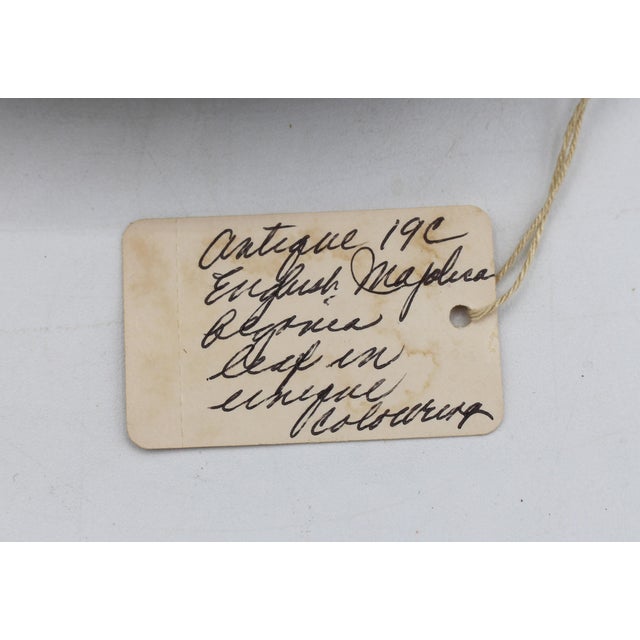 Antique 19C
English Majolica
Begonia
leaf in
unique
colouring